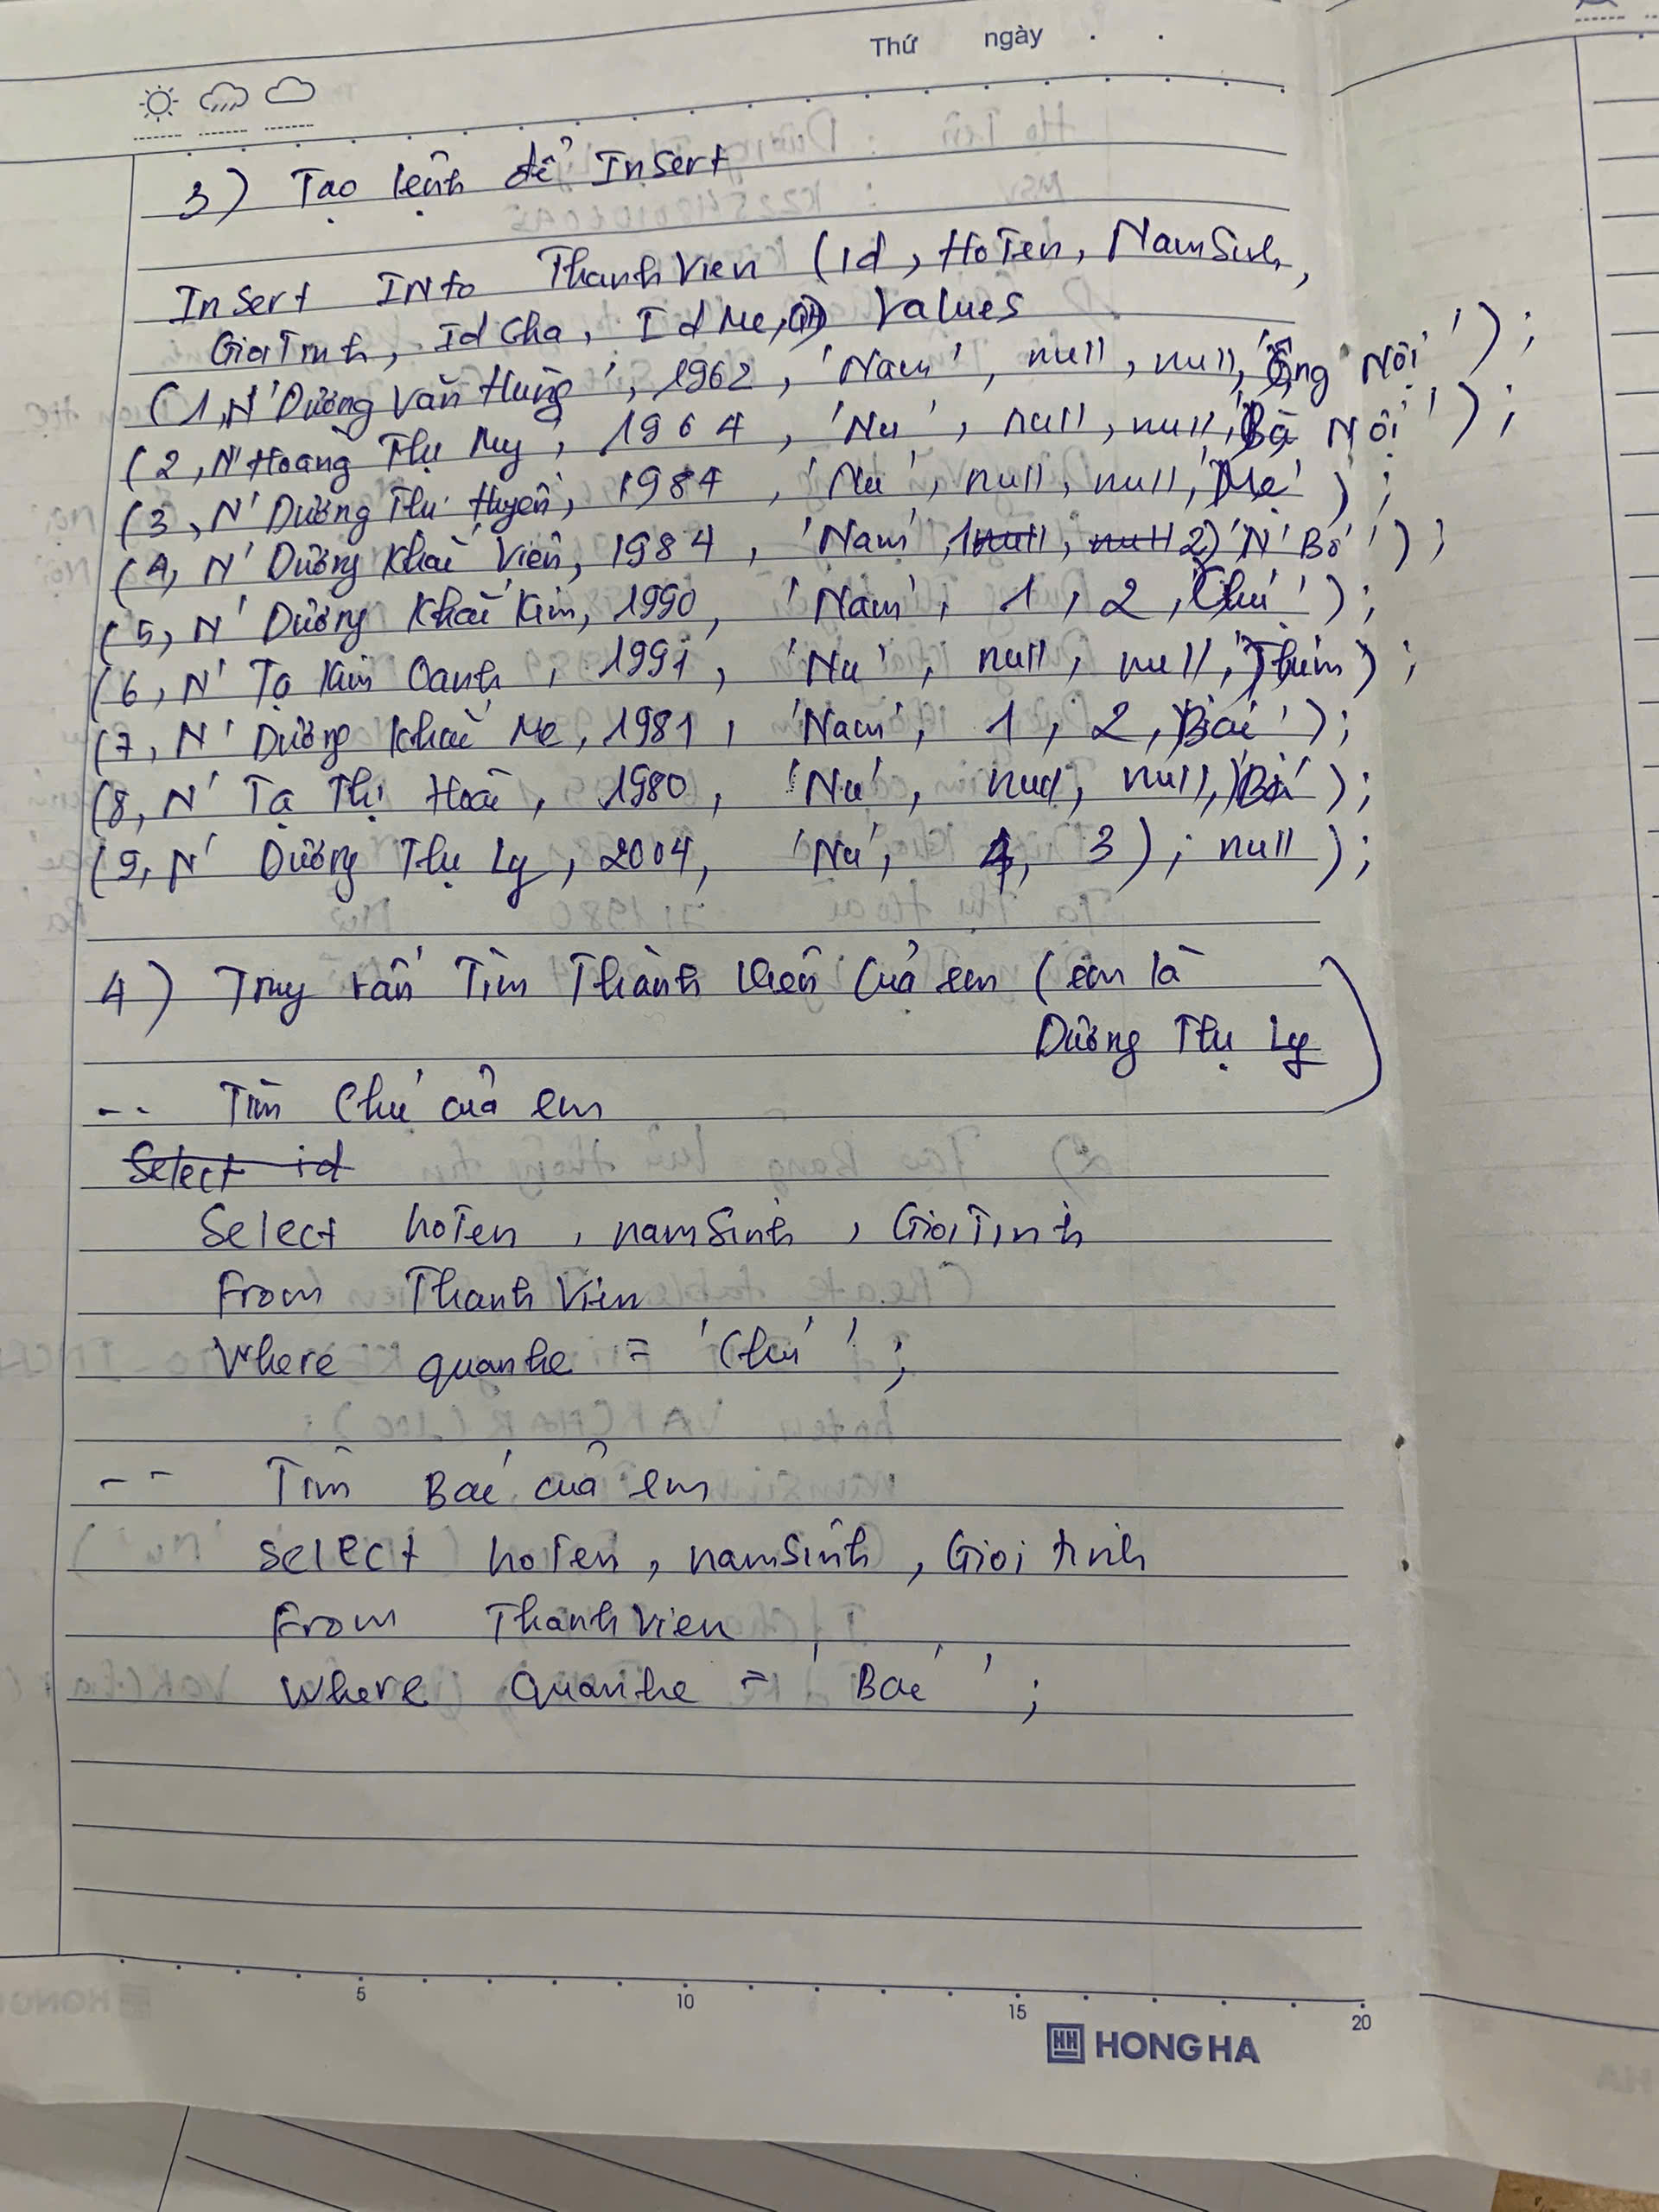 Thứ ngày
3) Tạo lệnh để Insert
Insert INto ThanhVien (id, HoTen, NamSinh,
GioiTinh, IdCha, IdMe, QH) Values
(1, N'Dương Văn Hùng', 1962, 'Nam', null, null, 'Ông Nội');
(2, N'Hoàng Thị My, 1964, 'Nu', null, null, 'Bà Nội');
(3, N'Dương Thu Huyền, 1984, 'Nu', null, null, 'Mẹ');
(4, N'Dương Khắc Viên, 1984, 'Nam', 1, 2) 'N'Bố');
(5, N'Dương Khắc Kim, 1990, 'Nam', 1, 2, 'Chú');
(6, N'Tạ Kim Oanh, 1991, 'Nu', null, null, 'Thím);
(7, N'Dương Khắc Me, 1981, 'Nam', 1, 2, 'Bác');
(8, N'Tạ Thị Hoài, 1980, 'Nu', null, null, 'Bá');
(9, N'Dương Thị Ly, 2004, 'Nu', 4, 3); null);
4) Truy vấn Tìm Thành Viên Của em (em là
Dương Thị Ly)
-- Tìm Chú của em
Select id
Select hoTen, namSinh, GioiTinh
From ThanhVien
Where quanhe = 'Chú';
-- Tìm Bác của em
select hoTen, namSinh, Gioi tinh
From ThanhVien
Where Quanhe = 'Bác';
5 10 15 20
HONG HA